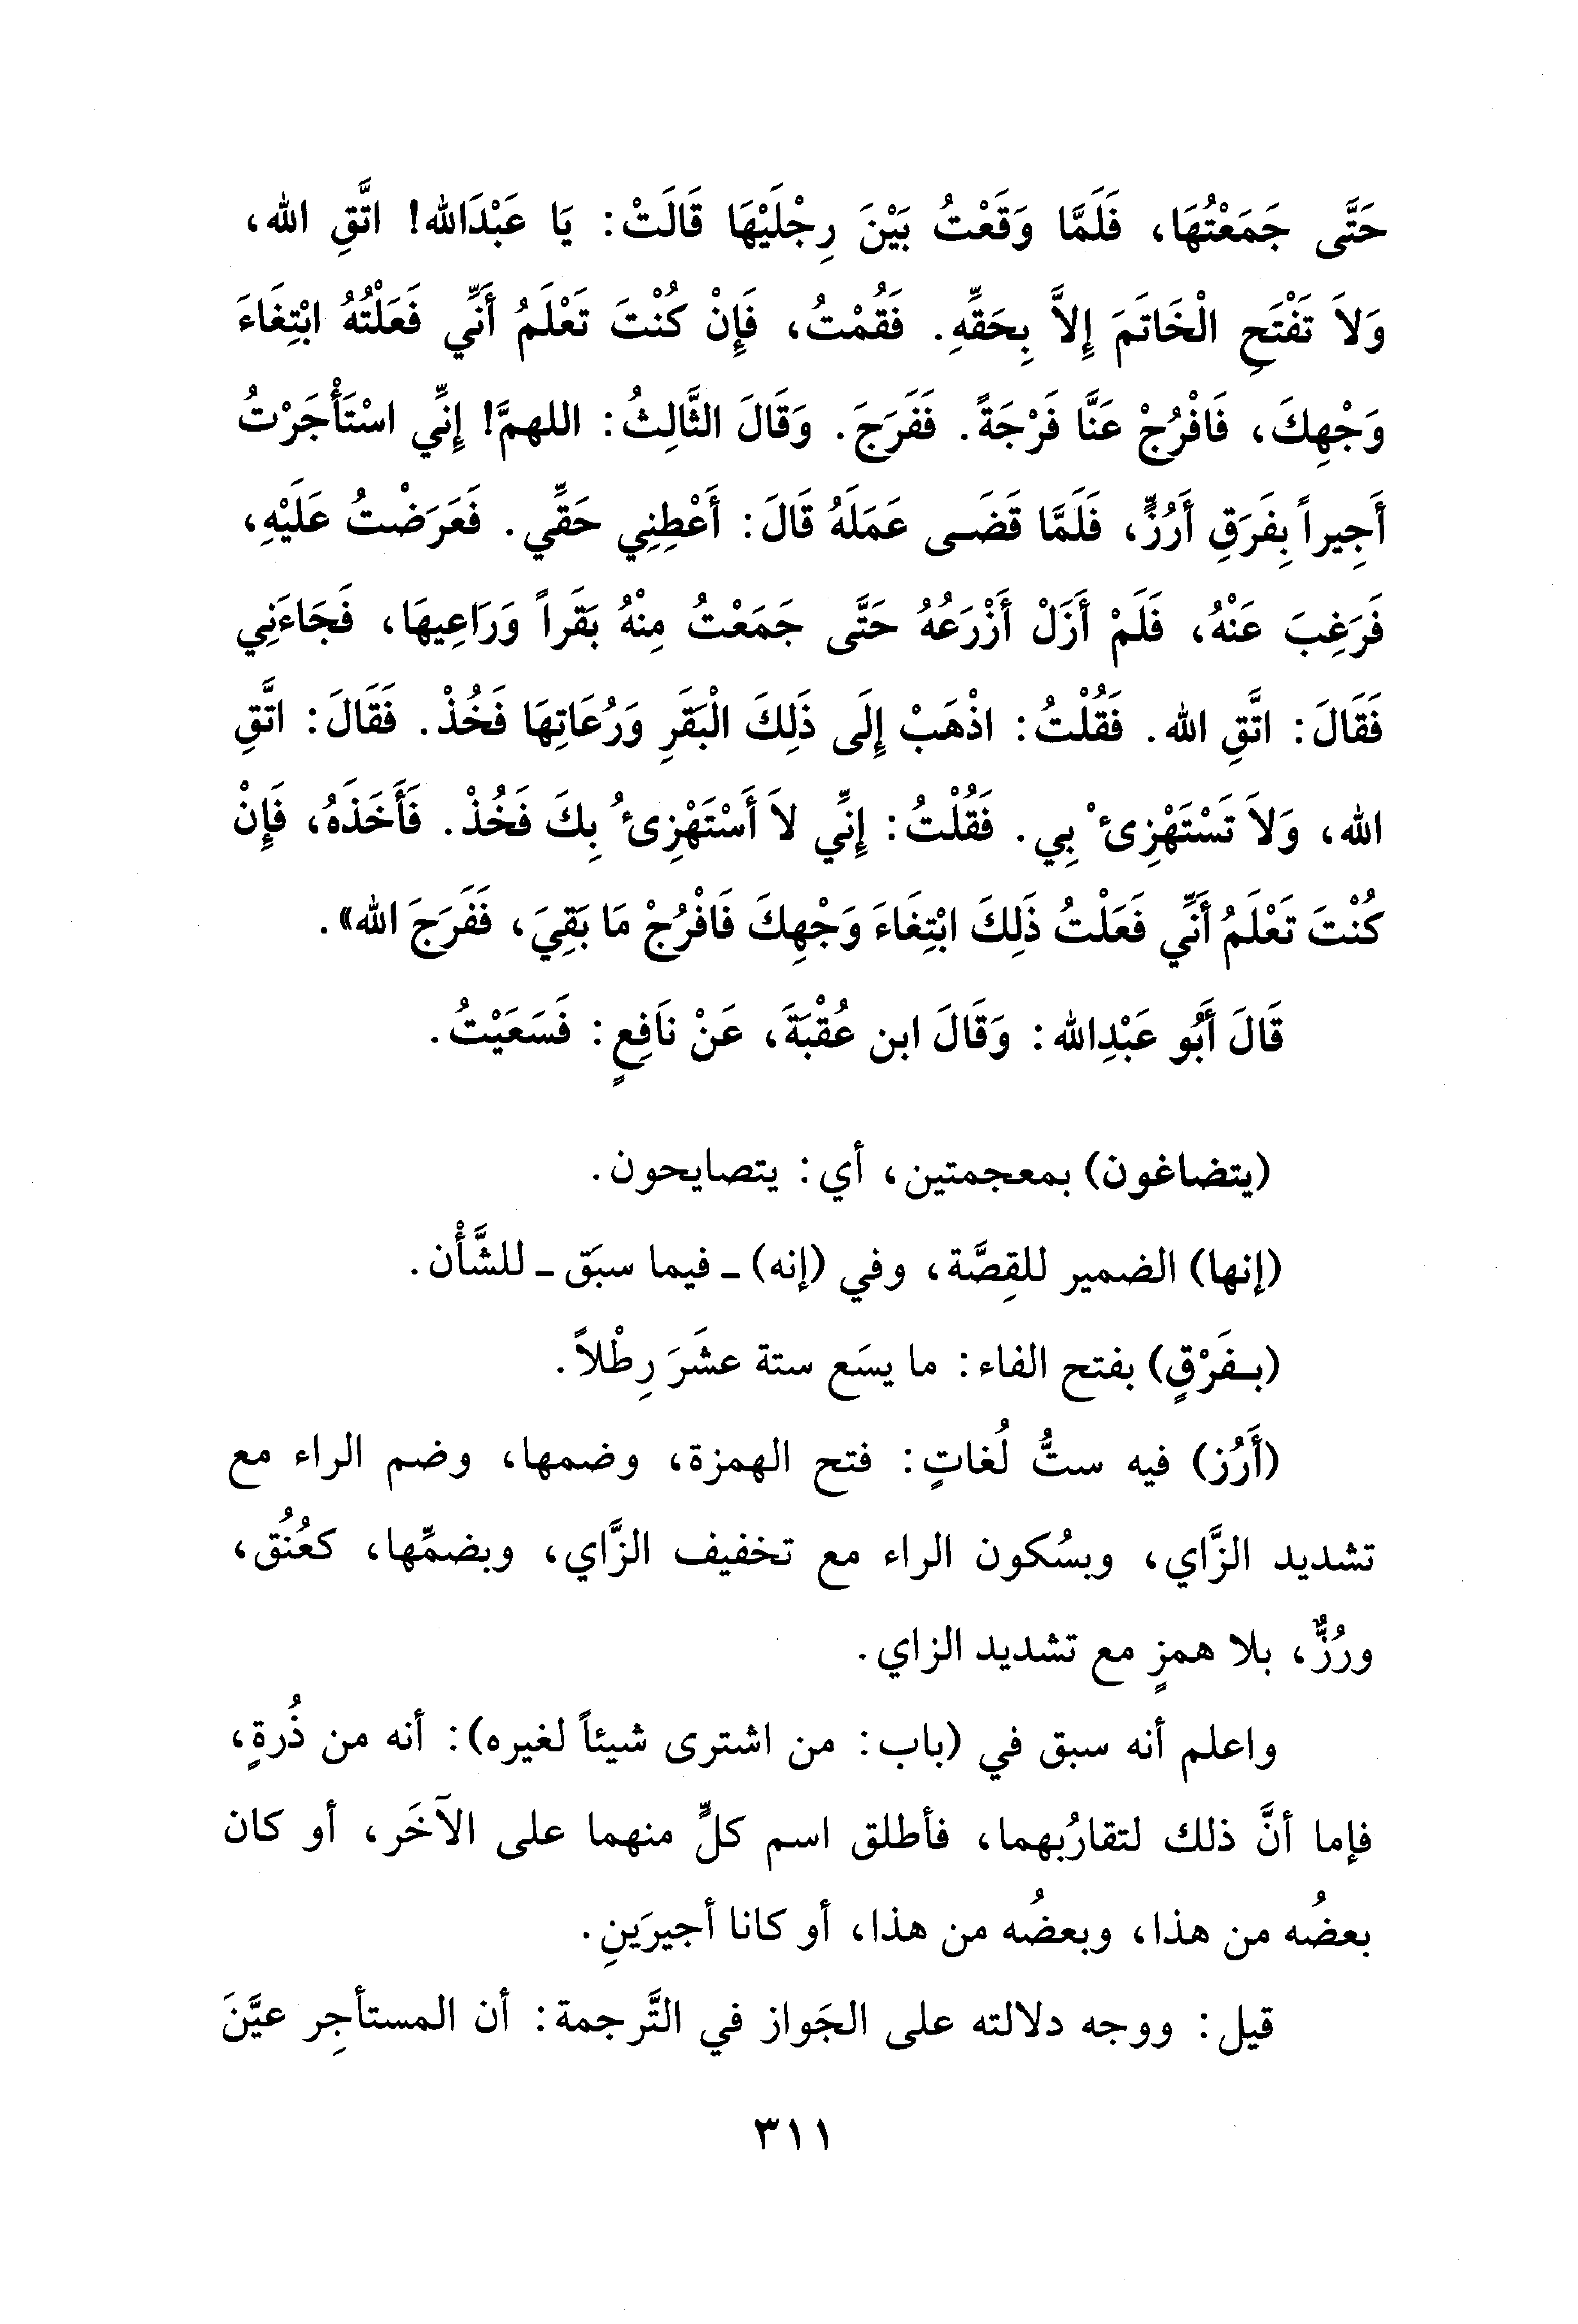 حَتَّى جَمَعْتُهَا، فَلَمَّا وَقَعْتُ بَيْنَ رِجْلَيْهَا قَالَتْ: يَا عَبْدَالله! اتَّقِ الله،
وَلاَ تَفْتَحِ الْخَاتَمَ إِلاَّ بِحَقِّهِ. فَقُمْتُ، فَإِنْ كُنْتَ تَعْلَمُ أَنِّي فَعَلْتُهُ ابْتِغَاءَ
وَجْهِكَ، فَافْرُجْ عَنَّا فَرْجَةً. فَفَرَجَ. وَقَالَ الثَّالِثُ: اللهمَّ! إِنِّي اسْتَأْجَرْتُ
أَجِيراً بِفَرَقِ أَرُزٍّ، فَلَمَّا قَضَى عَمَلَهُ قَالَ: أَعْطِنِي حَقِّي. فَعَرَضْتُ عَلَيْهِ،
فَرَغِبَ عَنْهُ، فَلَمْ أَزَلْ أَزْرَعُهُ حَتَّى جَمَعْتُ مِنْهُ بَقَراً وَرَاعِيهَا، فَجَاءَنِي
فَقَالَ: اتَّقِ الله. فَقُلْتُ: اذْهَبْ إِلَى ذَلِكَ الْبَقَرِ وَرُعَاتِهَا فَخُذْ. فَقَالَ: اتَّقِ
الله، وَلاَ تَسْتَهْزِىْٔ بِي. فَقُلْتُ: إِنِّي لاَ أَسْتَهْزِىُٔ بِكَ فَخُذْ. فَأَخَذَهُ، فَإِنْ
كُنْتَ تَعْلَمُ أَنِّي فَعَلْتُ ذَلِكَ ابْتِغَاءَ وَجْهِكَ فَافْرُجْ مَا بَقِيَ، فَفَرَجَ الله».
قَالَ أَبُو عَبْدِالله: وَقَالَ ابن عُقْبَةَ، عَنْ نَافِعٍ: فَسَعَيْتُ.
(يتضاغون) بمعجمتين، أي: يتصايحون.
(إنها) الضمير للقِصَّة، وفي (إنه) ـ فيما سبَق ـ للشَّأْن.
(بـفَرْقٍ) بفتح الفاء: ما يسَع ستة عشَرَ رِطْلاً.
(أَرُز) فيه ستُّ لُغاتٍ: فتح الهمزة، وضمها، وضم الراء مع
تشديد الزَّاي، وبسُكون الراء مع تخفيف الزَّاي، وبضمِّها، كعُنُق،
ورُزٌّ، بلا همزٍ مع تشديد الزاي.
واعلم أنه سبق في (باب: من اشترى شيئاً لغيره): أنه من ذُرةٍ،
فإما أنَّ ذلك لتقارُبهما، فأطلق اسم كلٍّ منهما على الآخَر، أو كان
بعضُه من هذا، وبعضُه من هذا، أو كانا أجيرَينِ.
قيل: ووجه دلالته على الجَواز في التَّرجمة: أن المستأجِر عيَّنَ
٣١١